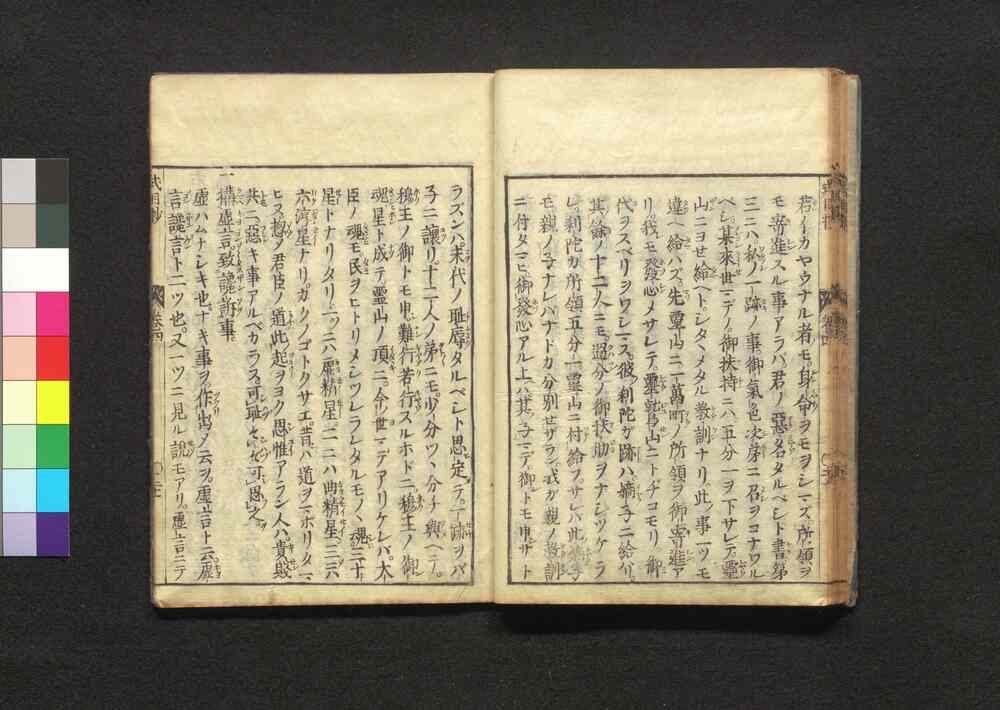 若イカヤウナル者モ。身命ヲモヲシマズ。所領ヲ
モ寄進スル事アラバ。君ノ惡名タルベシト書。第
三ニハ私ノ一跡ノ事。御氣色次第ニ召ヲコナワル
ベシ。某來世マデノ。御扶持ニハ五分一ヲ下サレテ。靈
山ニヨせ給ヘト。シタヽメタル教訓ナリ。此ノ事一ツモ
違ヘ給ハズ。先靈山ニ一萬町ノ所領ヲ御寄進ア
リ。我モ發心メサレテ。靈鷲山ニトヂコモリ。御
代ヲスベリヲワシマス。彼ノ利陀ガ跡ハ嫡子ニ給ハリ。
其餘ノ十二人ニモ。過分ノ御扶助ヲナシツケラ
レ。利陀カ所領五分一靈山ニ付給フ。サレバ此
モ親ノマナレバナドカ分別せザラン。我カ親ノ教訓
ニ付タマヒ。御發心アル上ハ。其ノ子マデ。御トモ申サト
ラズンバ。末代ノ耻辱タルベシト思定テ。一跡ヲバ
子ニ讓リ。十二人ノ弟ニモ。少分ツヽ分チ與ヘテ。
穆王ノ御トモ申。難行苦行スルホドニ。穆王ノ御
魂星ト成テ。靈山ノ頂ニ。今ノ世マデアリケレバ。大
臣ノ魂モ民ヲヒトリメシツレラレタルモノヽ魂三十。
星トナリタリ。一ツニハ廉精星。二ニハ曲精星。三ニハ
六濟星ナリ。カクノゴトクサエ。昔ハ道ヲマホリタマ
ヒス。惣ノ君臣ノ道此起ヲヨク思惟アラン人ハ。貴賎
共ニ。惡キ事アルベカラス。可耻々々可思之。
一 搆虚言。致讒訴事。
虚ハムナシキ也。ナキ事ヲ作出ノ云ヲ。虚言ト云。虚
言讒言トニツ也。又一ツニ見ル說モアリ。虚言ニテ
卷四